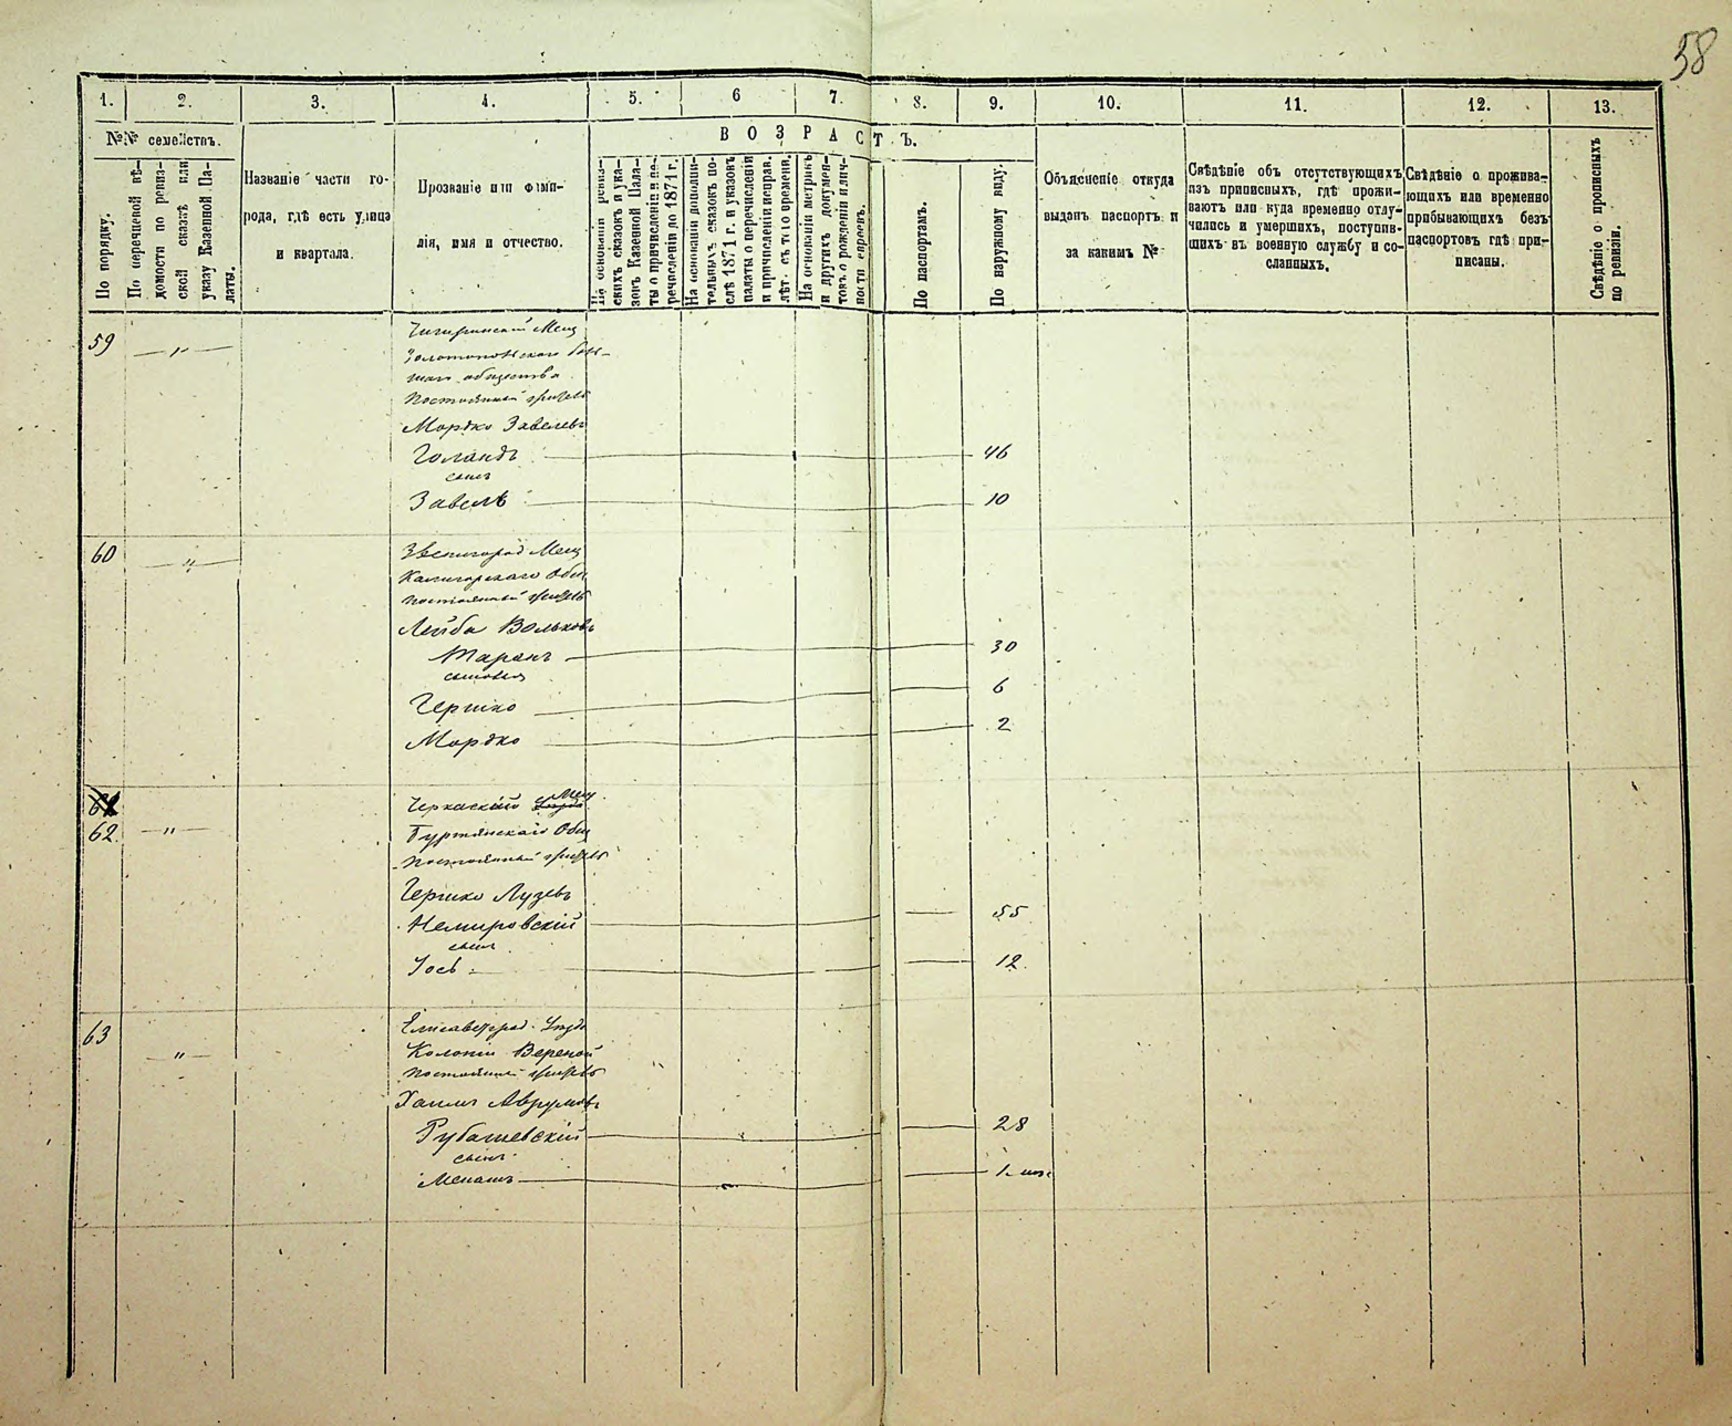 58
1. 2. 3. 4. 5. 6 7. 8. 9. 10. 11. 12. 13.
№№ семействъ.
По порядку.
По перечневой вѣ-
домости по ревиз-
ской сказкѣ или
указу Казенной Па-
латы.
Названіе части го-
рода, гдѣ есть улица
и квартала.
Прозваніе или фами-
лія, имя и отчество.
ВОЗРАСТЪ.
На основаніи ревиз-
скихъ сказокъ и ука-
зовъ Казенной Пала-
ты о причисленіи и пе-
речисленіи до 1871 г.
На основаніи дополни-
тельныхъ сказокъ по-
слѣ 1871 г. и указовъ
палаты о перечисленіи
и причисленіи исправ.
лѣт. съ того времени.
На основаніи метрикъ
и другихъ докумен-
товъ о рожденіи и лич-
ности евреевъ.
По паспортамъ.
По наружному виду.
Объясненіе откуда
выданъ паспортъ и
за какимъ №
Свѣдѣніе объ отсутствующихъ
изъ приписныхъ, гдѣ прожи-
ваютъ или куда временно отлу-
чились и умершихъ, поступив-
шихъ въ военную службу и со-
сланныхъ.
Свѣдѣніе о прожива-
ющихъ или временно
прибывающихъ безъ
паспортовъ гдѣ при-
писаны.
Свѣдѣніе о прописныхъ
по ревизіи.
59 — " — Чигиринскій Мещ
Золотоношскаго
общества
Постоянный житель
Мордко Завелевъ
Голандъ 46
сынъ
Завель 10
60 — " — Звенигород Мещ
Калигорскаго Общ
Постоянный житель
Лейба Вольковъ
Таранъ 30
сыновья
Гершко 6
Мордко 2
61
62. — " — Черкаскаго Мещ
Буртянскаго Общ
Постоянный житель
Гершко Лузевъ
Немировскій 55
сынъ
Іось 12.
63 — " — Елисаветград. Уезда
Колоніи
Постоянный житель
Хаимъ Аврумовъ
Рубашевскій 28
сынъ
Менашъ 1